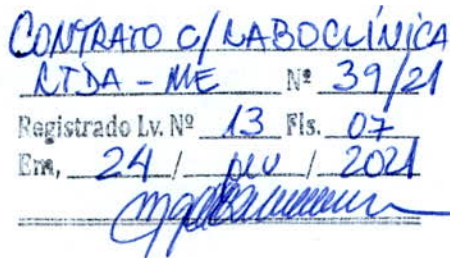 CONTRATO C/ LABOCLÍNICA
LTDA - ME Nº 39/21
Registrado Lv. Nº 13 Fls. 07
Em, 24 / / 2021